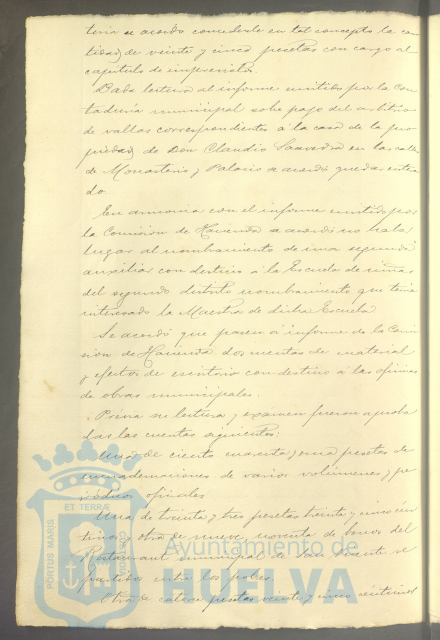 teria se acordó concederle en tal concepto la can
tidad de veinte y cinco pesetas con cargo al
capítulo de imprevistos.
Dada lectura al informe emitido por la Con
taduría municipal sobre pago del arbitrio
de vallas correspondientes á la casa de la pro
piedad de Don Claudio Saavedra en las calles
de Monasterio y Palacio se acordó quedar entera
do.
En armonía con el informe emitido por
la Comisión de Hacienda se acordó no haber
lugar al nombramiento de una segunda
auxiliar con destino á la Escuela de niñas
del segundo distrito nombramiento que tenia
interesado la Maestra de dicha Escuela
Se acordó que pasen á informe de la Comi
sion de Hacienda dos cuentas de material
y efectos de escritorio con destino á las oficinas
de obras municipales.
Previa su lectura y examen fueron aproba
das las cuentas siguientes:
Una de ciento cuarenta y una pesetas de
encuadernaciones de varios volúmenes y pe
riódicos oficiales
Una de treinta y tres pesetas treinta y cinco cén
timos y otra de nueve noventa de bonos del
Restaurant municipal de San Vicente re
partidos entre los pobres.
Otra de catorce pesetas veinte y cinco céntimos
PORTUS MARIS
ET TERRÆ
CUSTODIA
Ayuntamiento de
HUELVA